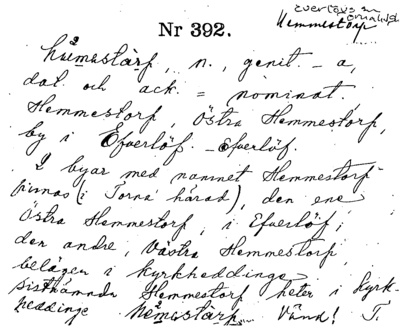 Everlövs sn
Torna hd
Hemmestorp
Nr 392.
hæmestårp, n., genit. - a,
dat. och ack. = nominat.
Hemmestorp, Östra Hemmestorp,
by i Efverlöf. - Efverlöf.
2 byar med namnet Hemmestorp
finnas (i Torna härad), den ena
Östra Hemmestorp, i Efverlöf;
den andre, Västra Hemmestorp,
belägen i Kyrkheddinge.
Sistnämnda Hemmestorp heter i Kyrk-
heddinge Næmestårp. Vänd! T.